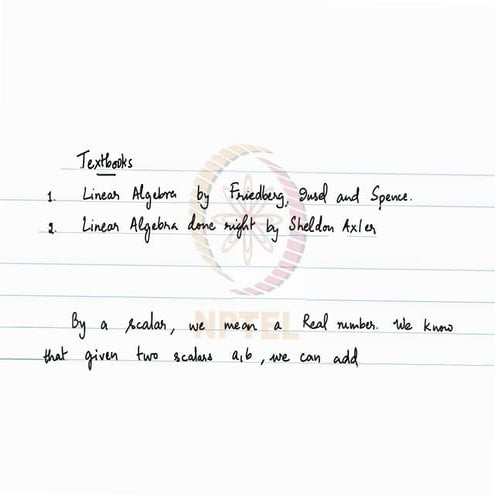 Textbooks
1. Linear Algebra by Friedberg, Insel and Spence.
2. Linear Algebra done right by Sheldon Axler
NPTEL
By a scalar, we mean a Real number. We know
that given two scalars a,b, we can add